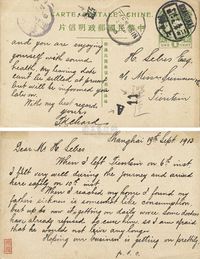 CARTE POSTALE — CHINE.
中華民國郵政明信片
and you are enjoying
yourself with sound
health, my leaving date
not be settled at present
but will be informed you
later on.
With my best regard
yours
H. Lebes Esq.
Tientsin
Shanghai 19th Sept 1913
Dear Mr H. Lebes
When I left Tientsin on 6th inst
I felt very well during the journey and arrived
here safely on 10th inst
When I reached my home I found my
father sickness is somewhat like consumption,
but up to now if getting on daily worse, some doctors
have already refused to cure him so I am afraid
that he would not live any longer.
Hoping our business is getting on prettily,
p.t.o.